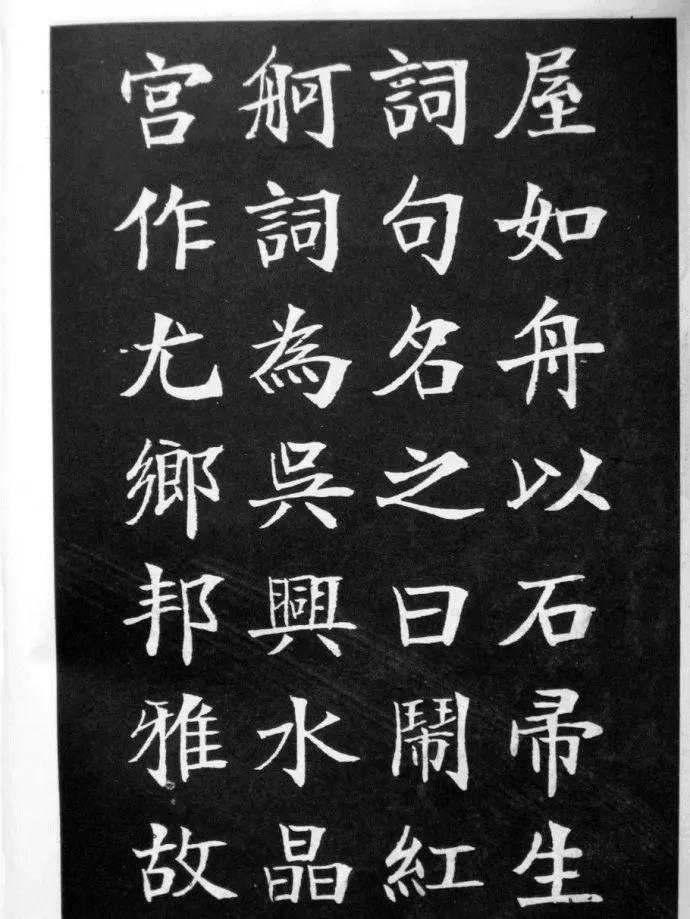 屋如舟以石帚生
詞句名之曰鬧紅
舸詞為吳興水晶
宮作尤鄉邦雅故